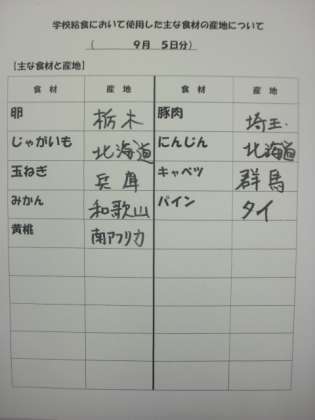 学校給食において使用した主な食材の産地について
(　　　9月　5日分)
[主な食材と産地]
食　材　産　地　食　材　産　地
卵　栃木　豚肉　埼玉
じゃがいも　北海道　にんじん　北海道
玉ねぎ　兵庫　キャベツ　群馬
みかん　和歌山　パイン　タイ
黄桃　南アフリカ